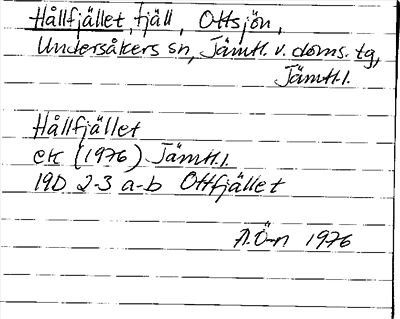 Hållfjället, fjäll, Ottsjön,
Undersåkers sn, Jämtl. v. doms. tg,
Jämtl.
Hållfjället
ek (1976) Jämtl.
19D 2-3 a-b Ottfjället
A.Ö-n 1976